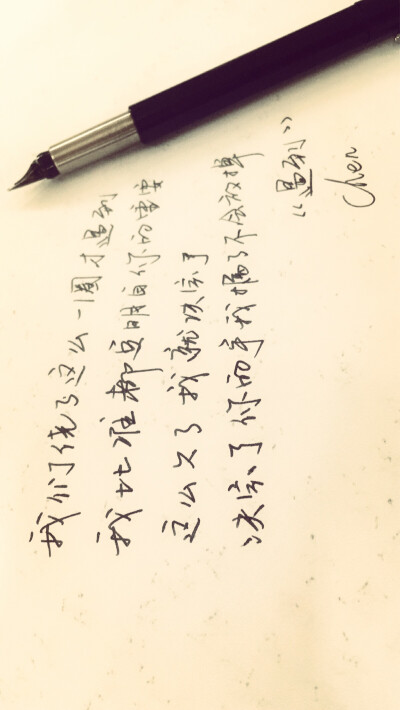 我们绕了这么一圈才遇到
我比谁都更明白你的重要
这么久了我就决定了
决定了你的手我握了不会放掉
《遇到》
Chen